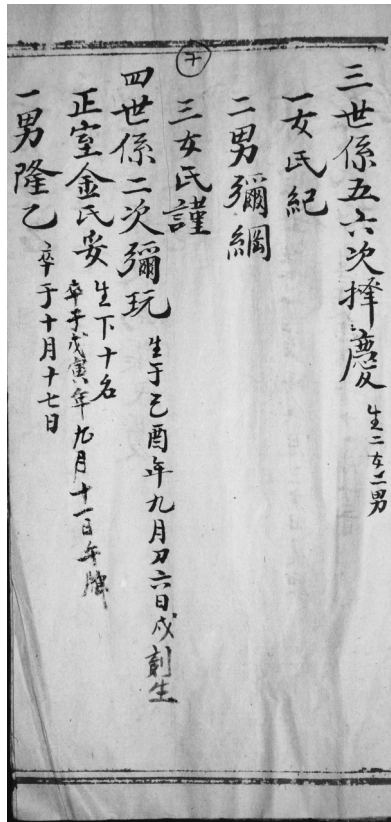 三世係五六次擇慶 生二女二男
一女氏紀
二男彌綱
三女氏謹
四世係二次彌玩 生于乙酉年九月刀六日戌刻生
正室金氏妥 生下十名
卒于戊寅年九月十一日午牌
一男隆乙 卒于十月十七日